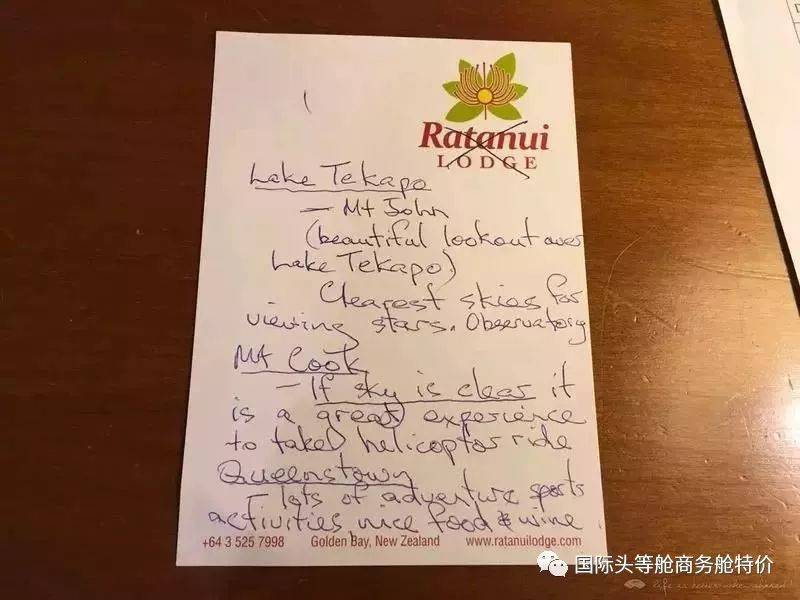 Ratanui
LODGE
Lake Tekapo
- Mt John
(beautiful lookout over
Lake Tekapo)
Clearest skies for
viewing stars. Observatory
Mt Cook
- If sky is clear it
is a great experience
to take helicoptor ride
Queenstown
- lots of adventure sports
activities, nice food & wine.
+64 3 525 7998 Golden Bay, New Zealand www.ratanuilodge.com
国际头等舱商务舱特价